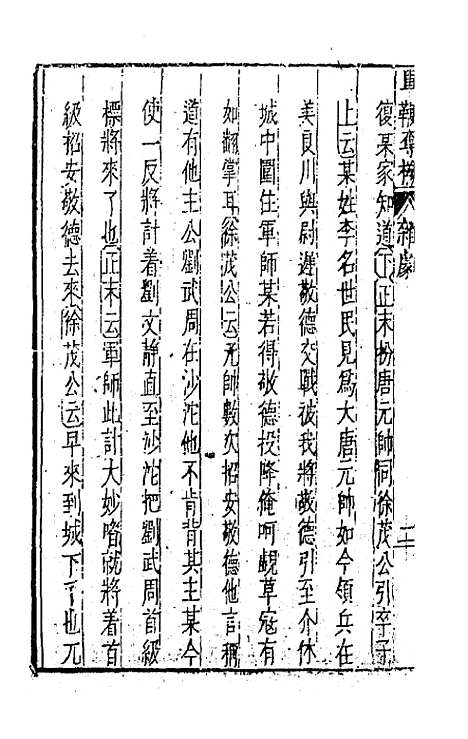 單鞭奪槊 雜劇 二
復某家知道下正末扮唐元帥同徐茂公引卒子
上云某姓李名世民見爲大唐元帥如今領兵在
美良川與尉遲敬德交戰被我將敬德引至介休
城中圍住軍師某若得敬德投降俺呵覷草寇有
如翻掌耳徐茂公云元帥數次招安敬德他言稱
道有他主公劉武周在沙沱他不肯背其主某今
使一反將計着劉文靜直至沙沱把劉武周首級
標將來了也正末云軍師此計大妙喒就將着首
級招安敬德去來徐茂公云早來到城下了也元